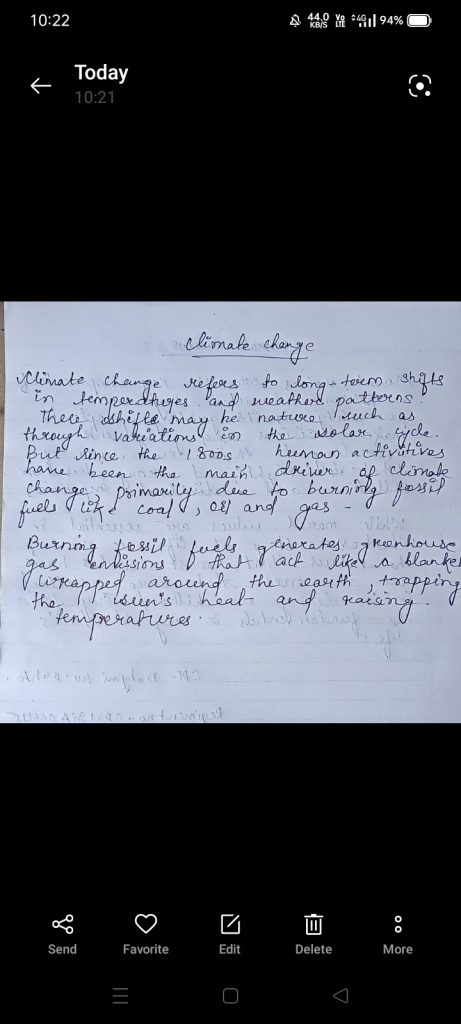 10:22
44.0 KB/S
Vo LTE
4G
94%
Today
10:21
Climate change
Climate change refers to long-term shifts
in temperatures and weather patterns.
These shifts may be nature, such as
through variations in the solar cycle.
But since the 1800s human activitives
have been the main driver of climate
change, primarily due to burning fossil
fuels like coal, oil and gas -
Burning fossil fuels generates greenhouse
gas emissions that act like a blanket
wrapped around the earth, trapping
the sun's heat and raising
temperatures.
Send
Favorite
Edit
Delete
More